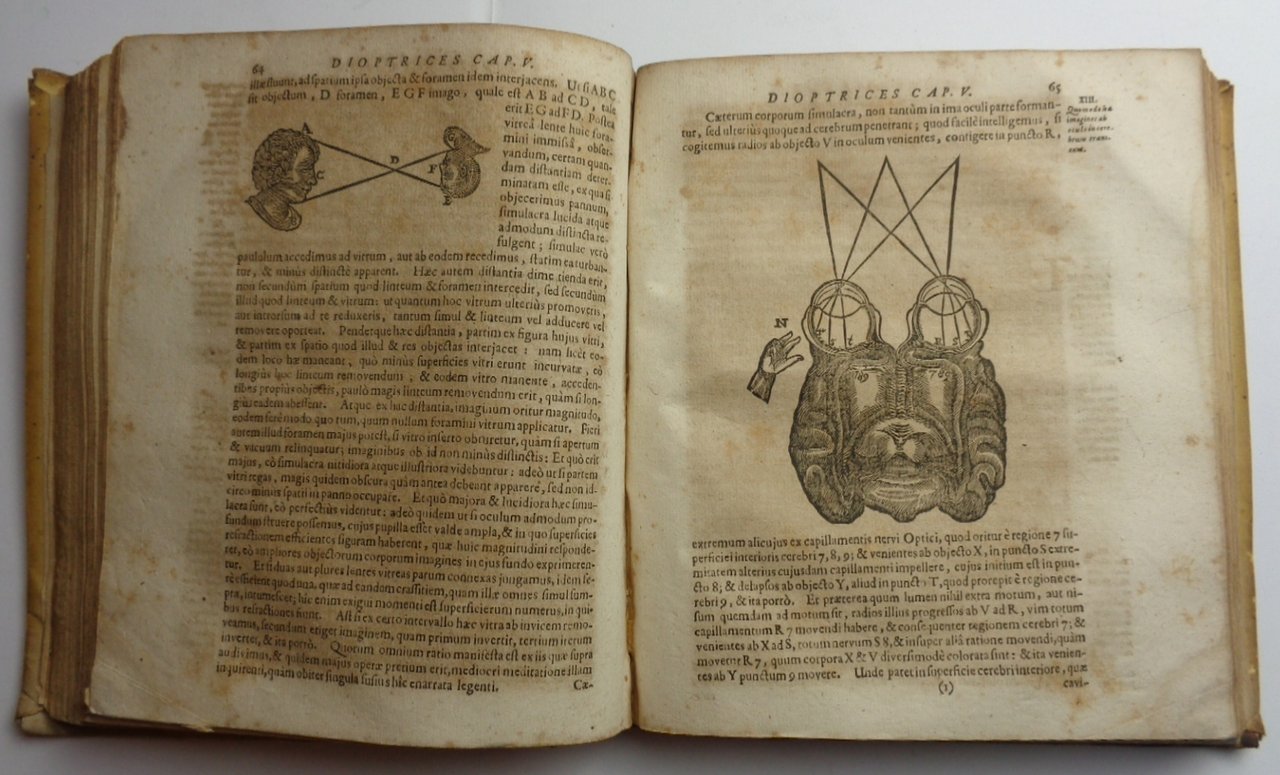 64
DIOPTRICES CAP. V.
illæ fluunt, ad spatium ipsa objecta & foramen idem interjacens. Ut si ABC
sit objectum, D foramen, EGF imago, quale est AB ad CD, tale
erit EG ad FD. Postea
vitreâ lente huic fora-
mini immissâ, obser-
vandum, certam quan-
dam distantiam deter-
minatam esse, ex qua si
objecerimus pannum,
simulacra lucida atque
admodum distincta re-
fulgent; simulac verò
A
D
C
F
E
paululum accedimus ad vitrum, aut ab eodem recedimus, statim ea turban-
tur, & minùs distinctè apparent. Hæc autem distantia dimetienda erit,
non secundùm spatium quod linteum & foramen intercedit, sed secundùm
illud quod linteum & vitrum: ut quantum hoc vitrum ulteriùs promoveris,
aut introrsum ad te reduxeris, tantum simul & linteum vel adducere vel
removere oporteat. Pendetque hæc distantia, partim ex figura hujus vitri,
& partim ex spatio quod illud & res objectas interjacet: nam licet eo-
dem loco hæ maneant, quò minùs superficies vitri erunt incurvatæ, eò
longiùs hoc linteum removendum; & eodem vitro manente, acceden-
tibus propiùs objectis, paulò magis linteum removendum erit, quàm si lon-
giùs eadem abessent. Atque ex hac distantia, imaginum oritur magnitudo,
eodem ferè modo quo tum, quum nullum foramini vitrum applicatur. Fieri
autem illud foramen majus potest, si vitro inserto obturetur, quàm si apertum
& vacuum relinquatur; imaginibus ob id non minùs distinctis: Et quò erit
majus, eò simulacra nitidiora atque illustriora videbuntur: adeò ut si partem
vitri tegas, magis quidem obscura quàm antea debeant apparere, sed non id-
circo minus spatii in panno occupare. Et quò majora & lucidiora hæc simu-
lacra sunt, eò perfectiùs videntur: adeò quidem ut si oculum admodum pro-
fundum struere possemus, cujus pupilla esset valde ampla, & in quo superficies
refractionem efficientes figuram haberent, quæ huic magnitudini responde-
ret, eò ampliores objectorum corporum imagines in ejus fundo exprimeren-
tur. Et si duas aut plures lentes vitreas parum connexas jungamus, idem fe-
rè efficient quod una, quæ ad eandem crassitiem, quam illæ omnes simul sum-
pta, intumescet; hic enim exigui momenti est superficierum numerus, in qui-
bus refractiones fiunt. Ast si ex certo intervallo hæc vitra ab invicem remo-
veamus, secundum eriget imaginem, quam primum invertit, tertium iterum
invertet, & ita porrò. Quorum omnium ratio manifesta est ex iis quæ supra
audivimus, & quidem majus operæ pretium erit, mediocri meditatione illam
inquirenti, quàm obiter singula fusiùs hîc enarrata legenti.
Cæ-
DIOPTRICES CAP. V.
65
Cæterum corporum simulacra, non tantùm in ima oculi parte forman-
tur, sed ulteriùs quoque ad cerebrum penetrant; quod facilè intelligemus, si
cogitemus radios ab objecto V in oculum venientes, contigere in puncto R,
XIII.
Quomodo hæ
imagines ab
oculo in cere-
brum transeant.
N
extremum alicujus ex capillamentis nervi Optici, quod oritur è regione 7 su-
perficiei interioris cerebri 7, 8, 9; & venientes ab objecto X, in puncto S extre-
mitatem alterius cujusdam capillamenti impellere, cujus initium est in pun-
cto 8; & delapsos ab objecto Y, aliud in puncto T, quod prorepit è regione ce-
rebri 9, & ita porrò. Et præterea quum lumen nihil extra motum, aut ni-
sum quemdam ad motum sit, radios illius progressos ab V ad R, vim totum
capillamentum R 7 movendi habere, & consequenter regionem cerebri 7; &
venientes ab X ad S, totum nervum S 8, & insuper aliâ ratione movendi, quàm
movetur R 7, quum corpora X & V diversimodè colorata sint: & ita venien-
tes ab Y punctum 9 movere. Unde patet in superficie cerebri interiore, quæ
(I)
cavi-